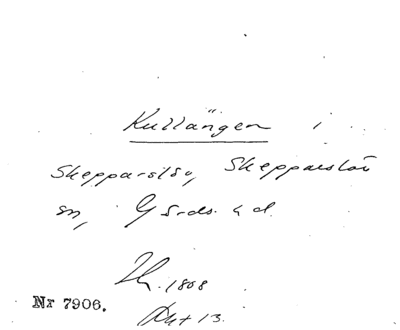 Kullängen i
Skepparslöv, Skepparslöv
sn, Gärds hd.
1808
Nr 7906.